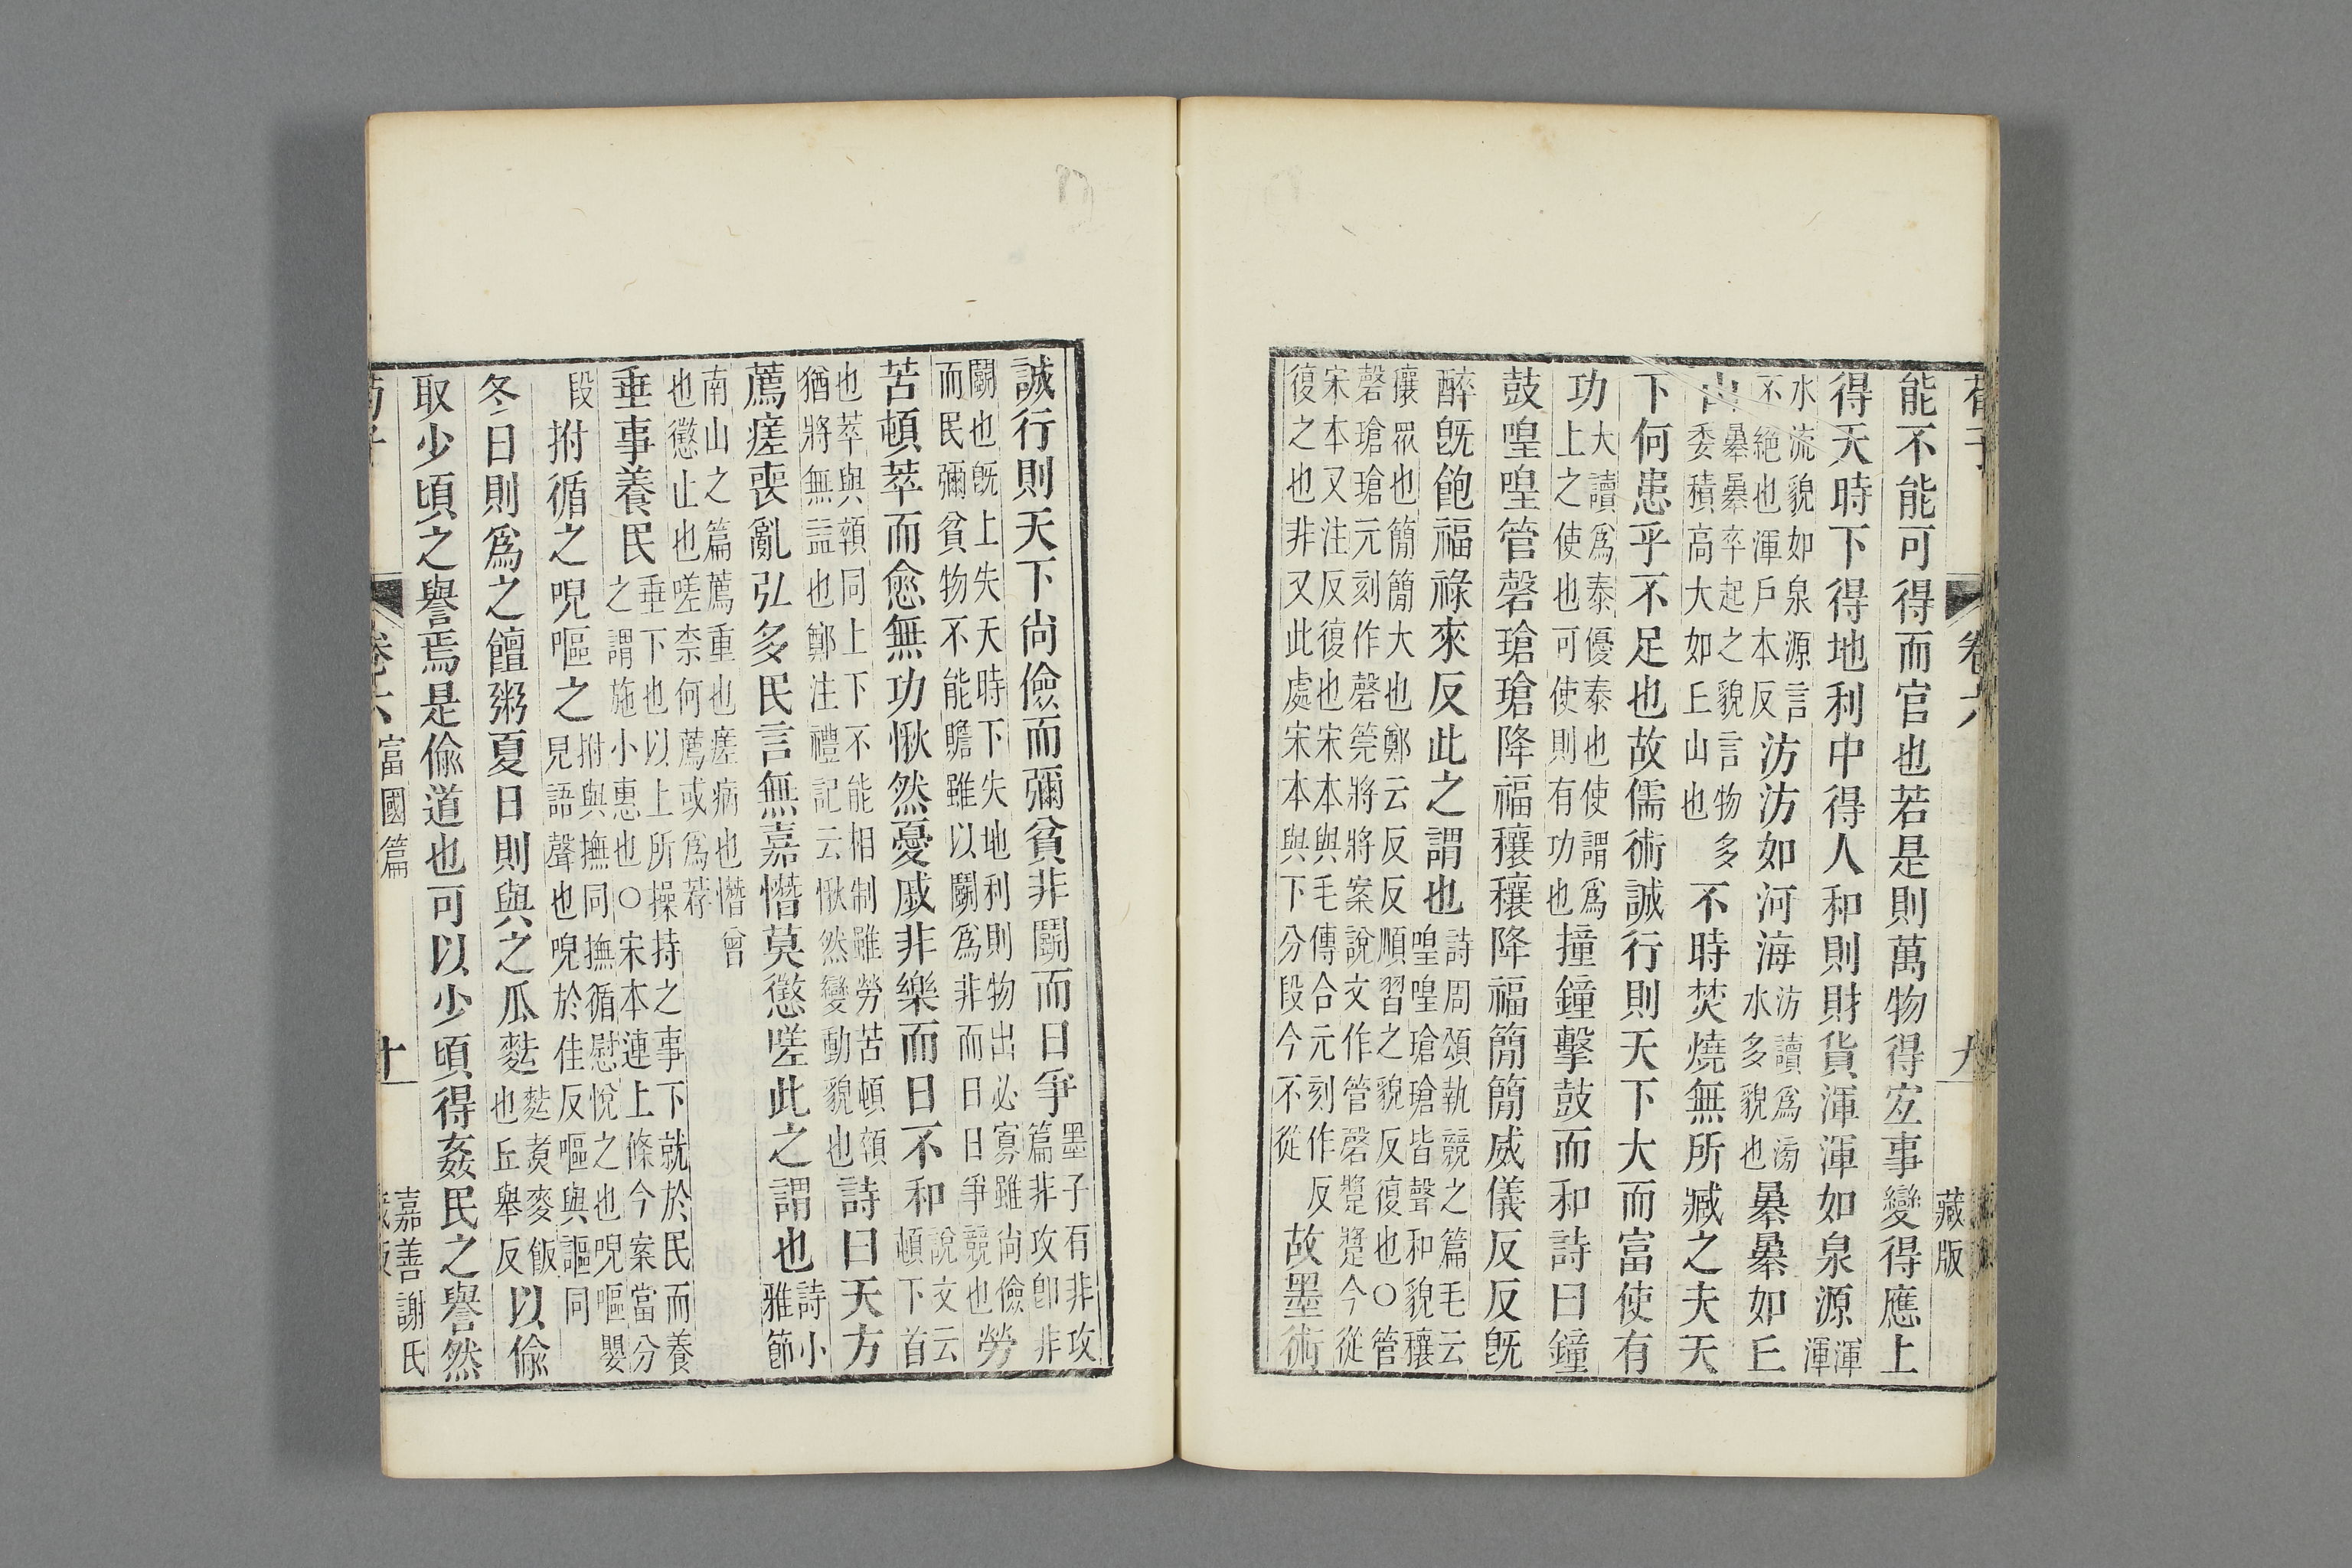 荀子
卷六
九
藏版
能不能可得而官也若是則萬物得宐事變得應上
得天時下得地利中得人和則財貨渾渾如泉源渾渾
水流貌如泉源言不絕也渾戶本反汸汸如河海汸讀爲滂水多貌也暴暴如丘
山暴暴卒起之貌言物多委積高大如丘山也不時焚燒無所臧之夫天
下何患乎不足也故儒術誠行則天下大而富使有
功大讀爲泰優泰也使謂爲上之使也可使則有功也撞鐘擊鼓而和詩曰鐘
鼓喤喤管磬瑲瑲降福穰穰降福簡簡威儀反反旣
醉旣飽福祿來反此之謂也詩周頌執競之篇毛云喤喤瑲瑲皆聲和貌穰
穰眾也簡簡大也鄭云反反順習之貌反復也○管磬瑲瑲元刻作磬筦將將案說文作管磬蹩蹩今從
宋本又注反復也宋本與毛傳合元刻作反復之也非又此處宋本與下分段今不從故墨術
誠行則天下尙儉而彌貧非鬭而日爭墨子有非攻篇非攻卽非
鬭也旣上失天時下失地利則物出必寡雖尙儉而民彌貧物不能贍雖以鬭爲非而日日爭競也勞
苦頓萃而愈無功愀然憂戚非樂而日不和說文云頓下首
也萃與顇同上下不能相制雖勞苦頓顇猶將無益也鄭注禮記云愀然變動貌也詩曰天方
薦瘥喪亂弘多民言無嘉憯莫懲嗟此之謂也詩小雅節
南山之篇薦重也瘥病也憯曾也懲止也嗟柰何薦或爲荐
垂事養民垂下也以上所操持之事下就於民而養之謂施小惠也○宋本連上條今案當分
段拊循之唲嘔之拊與撫同撫循慰悅之也唲嘔嬰兒語聲也唲於佳反嘔與謳同
冬日則爲之饘粥夏日則與之瓜麮麮煑麥飯也丘舉反以偸
取少頃之譽焉是偸道也可以少頃得姦民之譽然
荀子
卷六
富國篇
十
嘉善謝氏
藏版